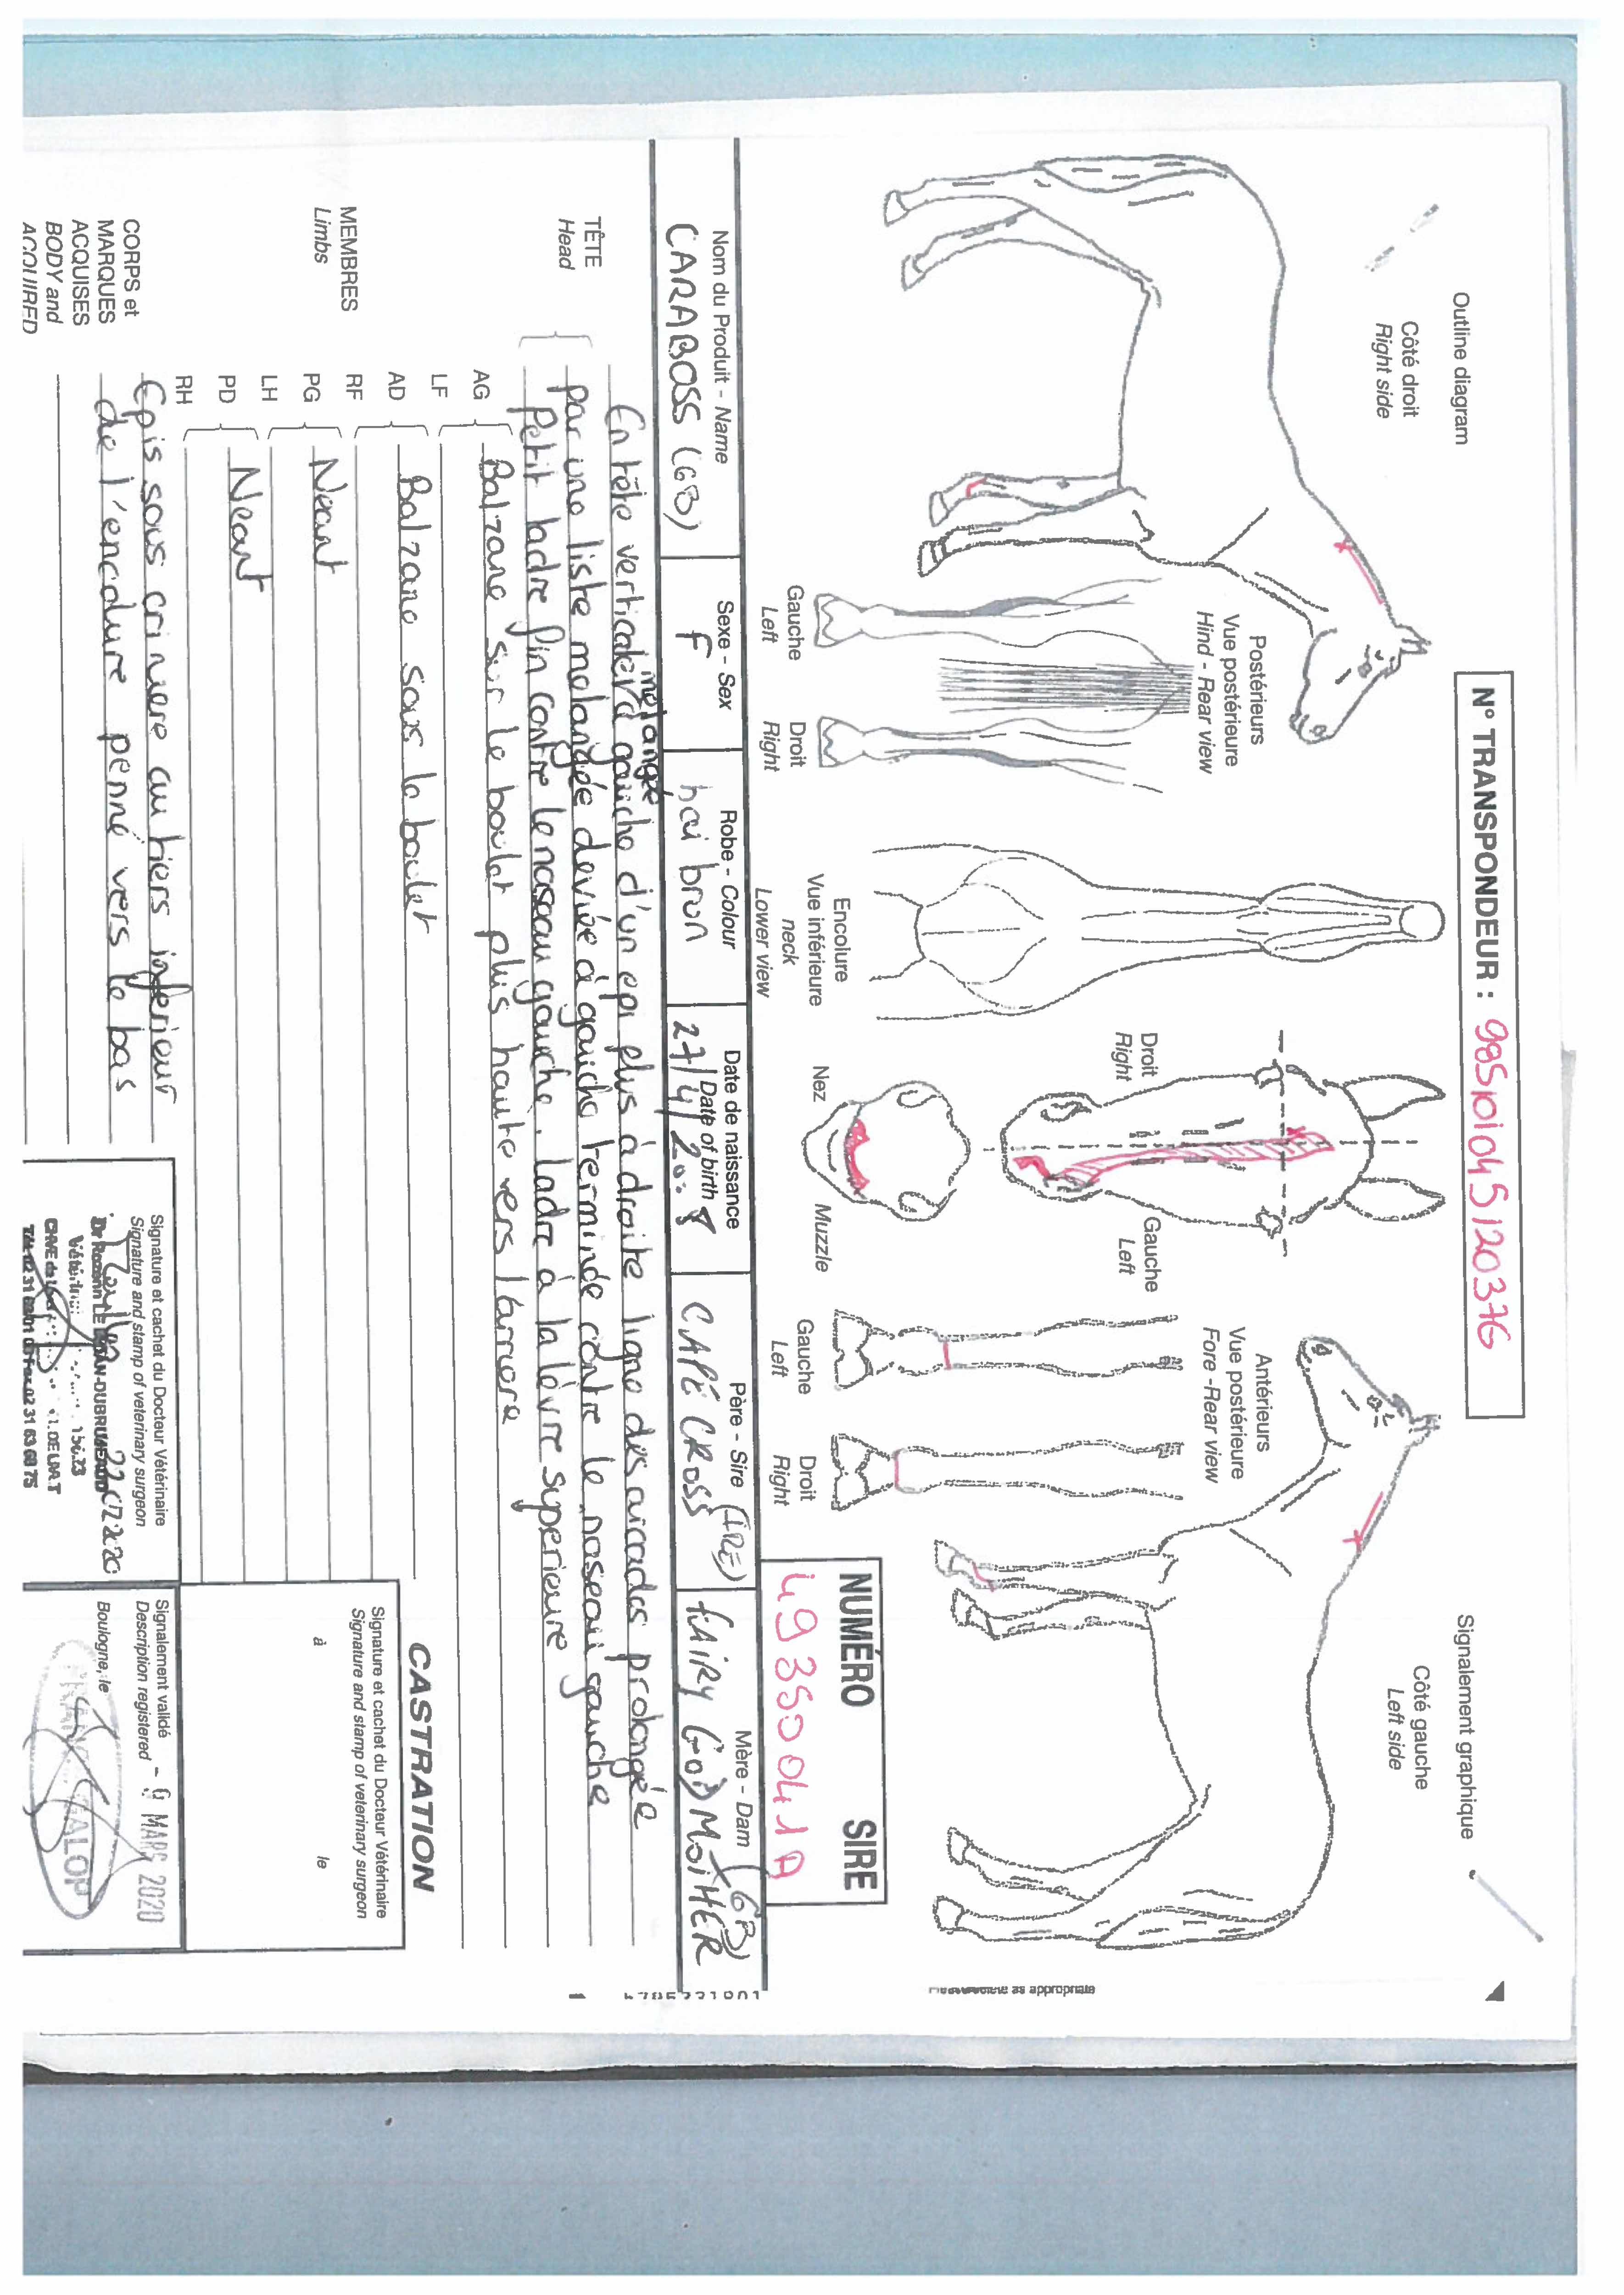 Outline diagram
Côté droit
Right side
N° TRANSPONDEUR : 985101045120376
Signalement graphique
Côté gauche
Left side
Postérieurs
Vue postérieure
Hind - Rear view
Gauche
Left
Droit
Right
Encolure
Vue inférieure
neck
Lower view
Droit
Right
Gauche
Left
Nez
Muzzle
Antérieurs
Vue postérieure
Fore -Rear view
Gauche
Left
Droit
Right
NUMÉRO SIRE
49350041A
as appropriate
Nom du Produit - Name
CARABOSS (GB)
Sexe - Sex
F
Robe - Colour
bai brun
Date de naissance
Date of birth
27/4/2018
Père - Sire
CAPE CROSS (IRE)
Mère - Dam
FAIRY GODMOTHER (GB)
TÊTE
Head
En tête verticale mélangée à gauche d'un épi plus à droite ligne des arcades prolongée
par une liste melangée deviée à gauche terminée contre le naseau gauche
Petit ladre fin contre le naseau gauche. ladre à la lèvre superieure
MEMBRES
Limbs
AG
LF
Balzane sur le boulet plus haute vers l'arriere
AD
RF
Balzane sous le boulet
PG
LH
Neant
PD
RH
Neant
CORPS et
MARQUES
ACQUISES
BODY and
ACQUIRED
Epis sous criniere au tiers inferieur
de l'encolure penné vers le bas
CASTRATION
Signature et cachet du Docteur Vétérinaire
Signature and stamp of veterinary surgeon
à
le
Signature et cachet du Docteur Vétérinaire
Signature and stamp of veterinary surgeon
Signalement validé
Description registered
MARS 2020
Boulogne, le
FRANCE GALOP